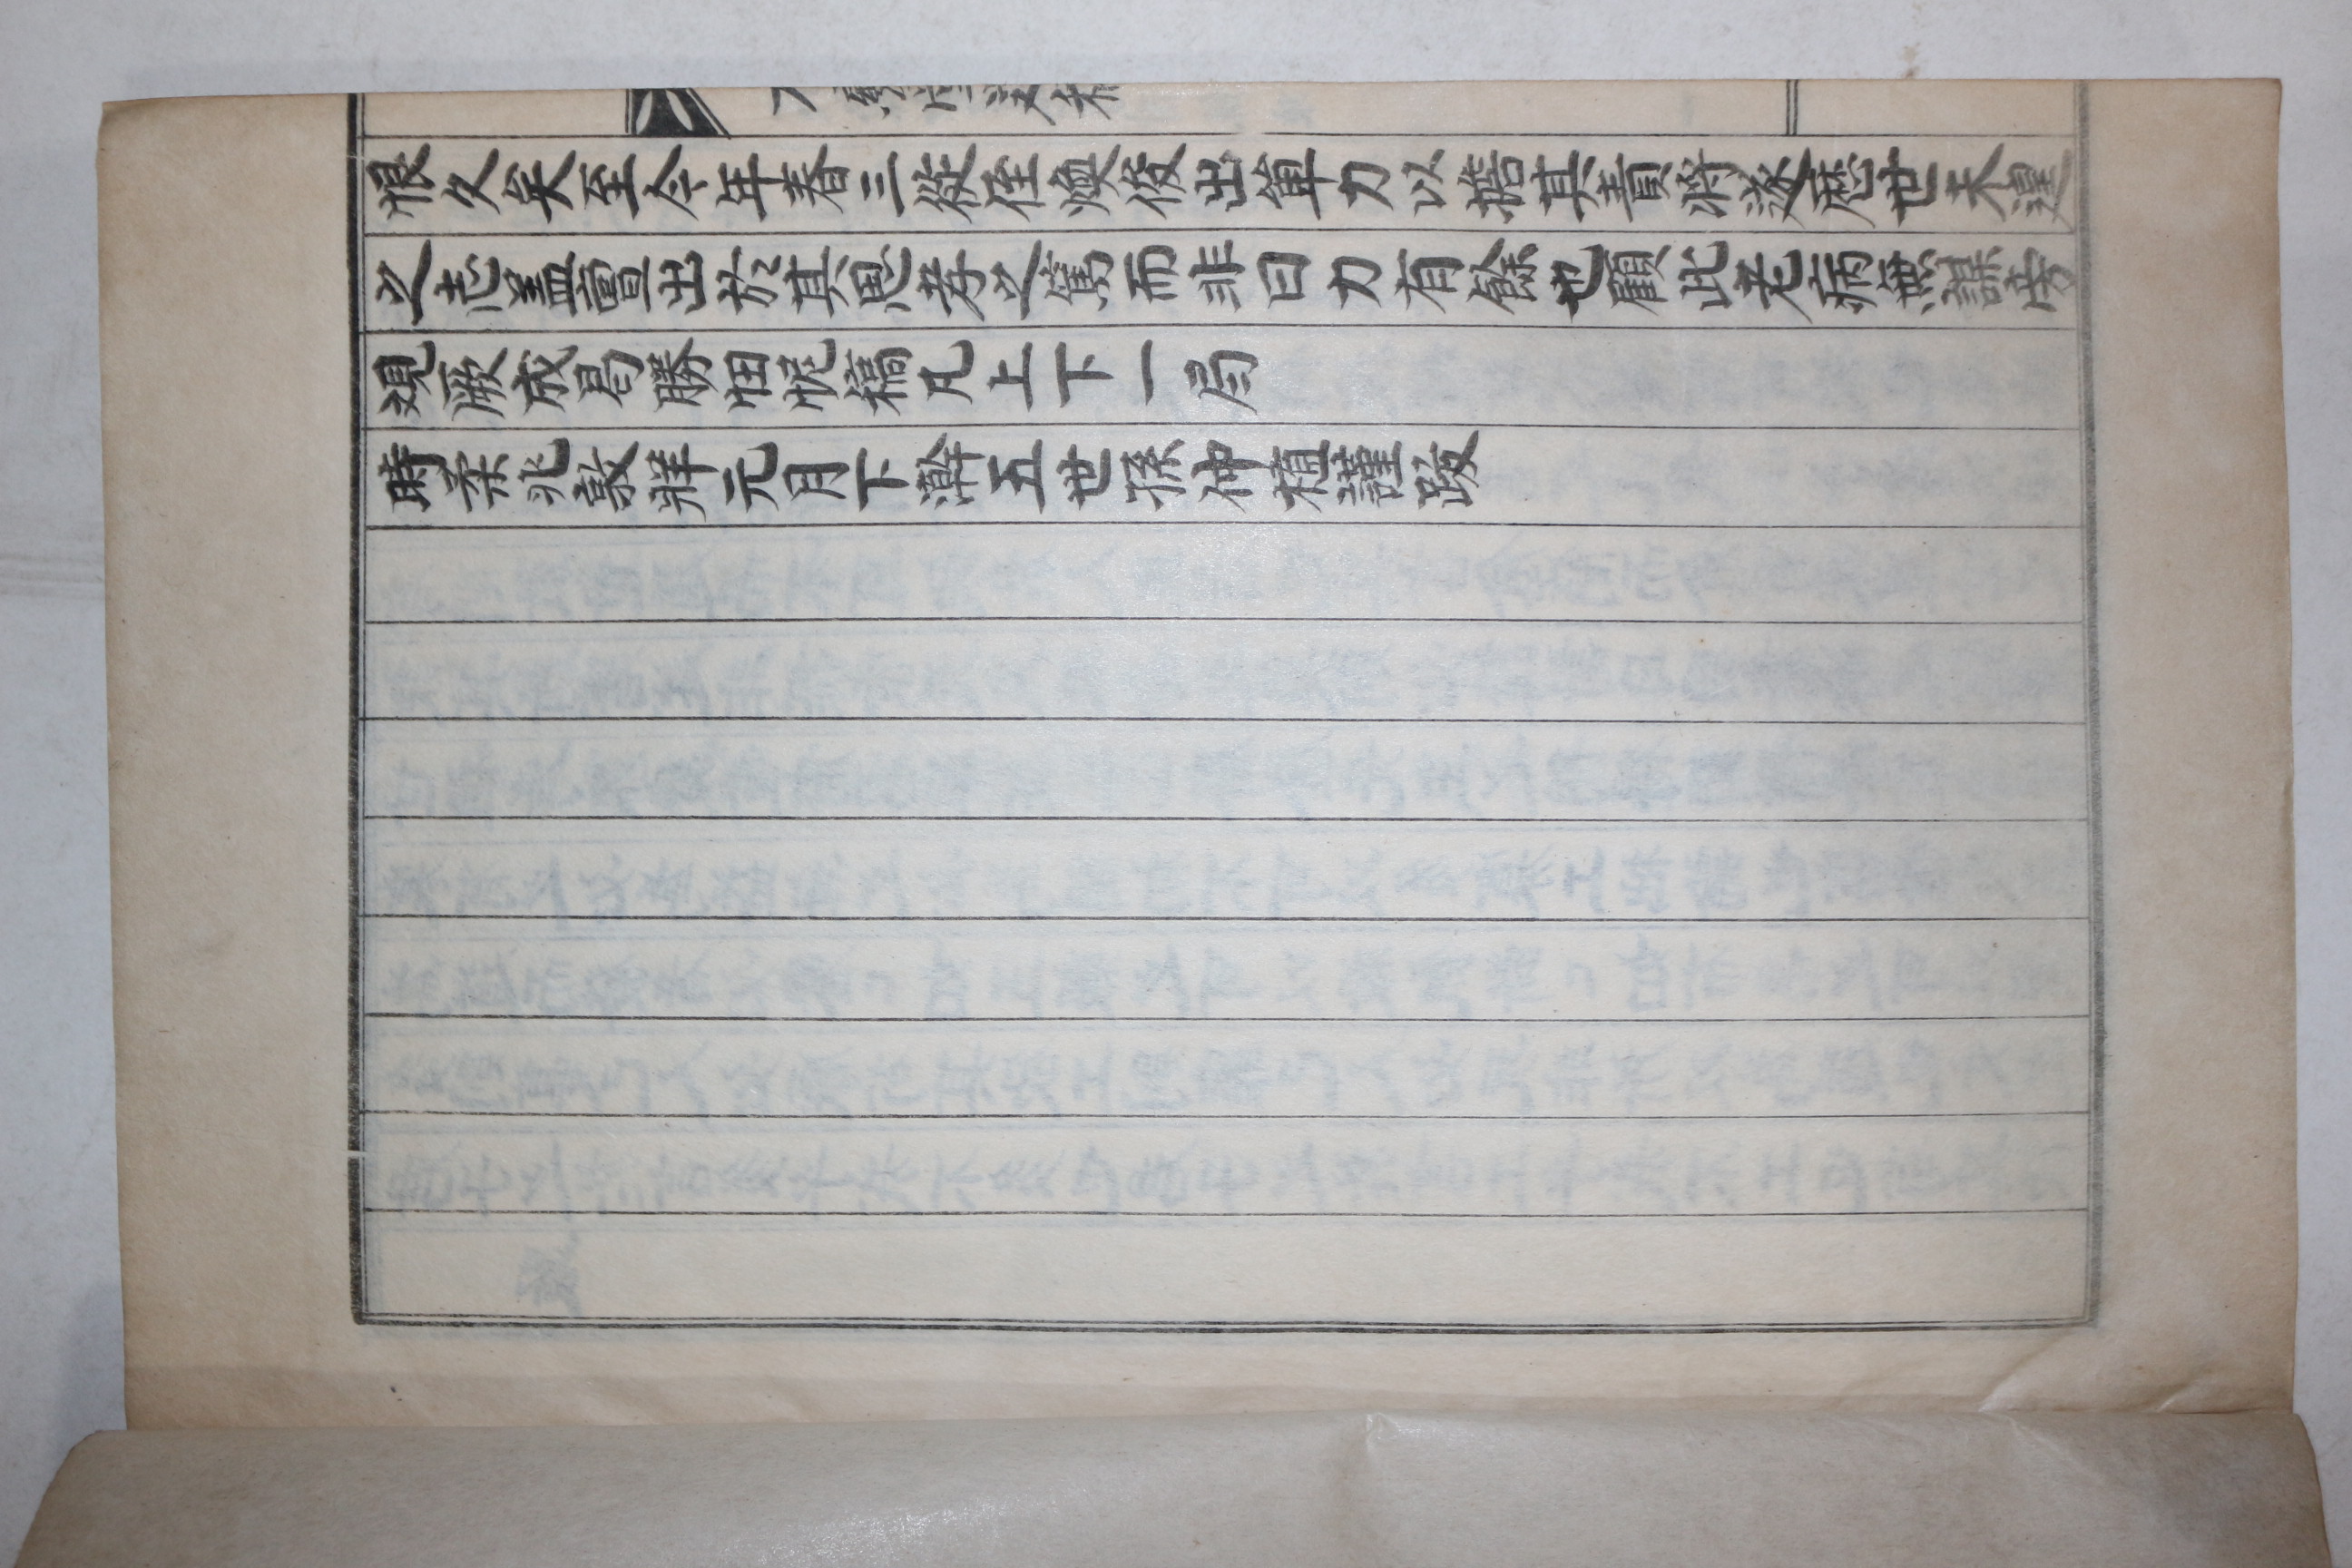 恨久矣至今年春三從侄煥俊出單力以擔其責將遂歷世未遑
之志盖亶出於其思孝之篤而非曰力有餘也顧此老病無謀旁
覌厥成曷勝忸怩稿凡上下一局
時柔兆敦牂元月下澣五世孫仲植謹跋